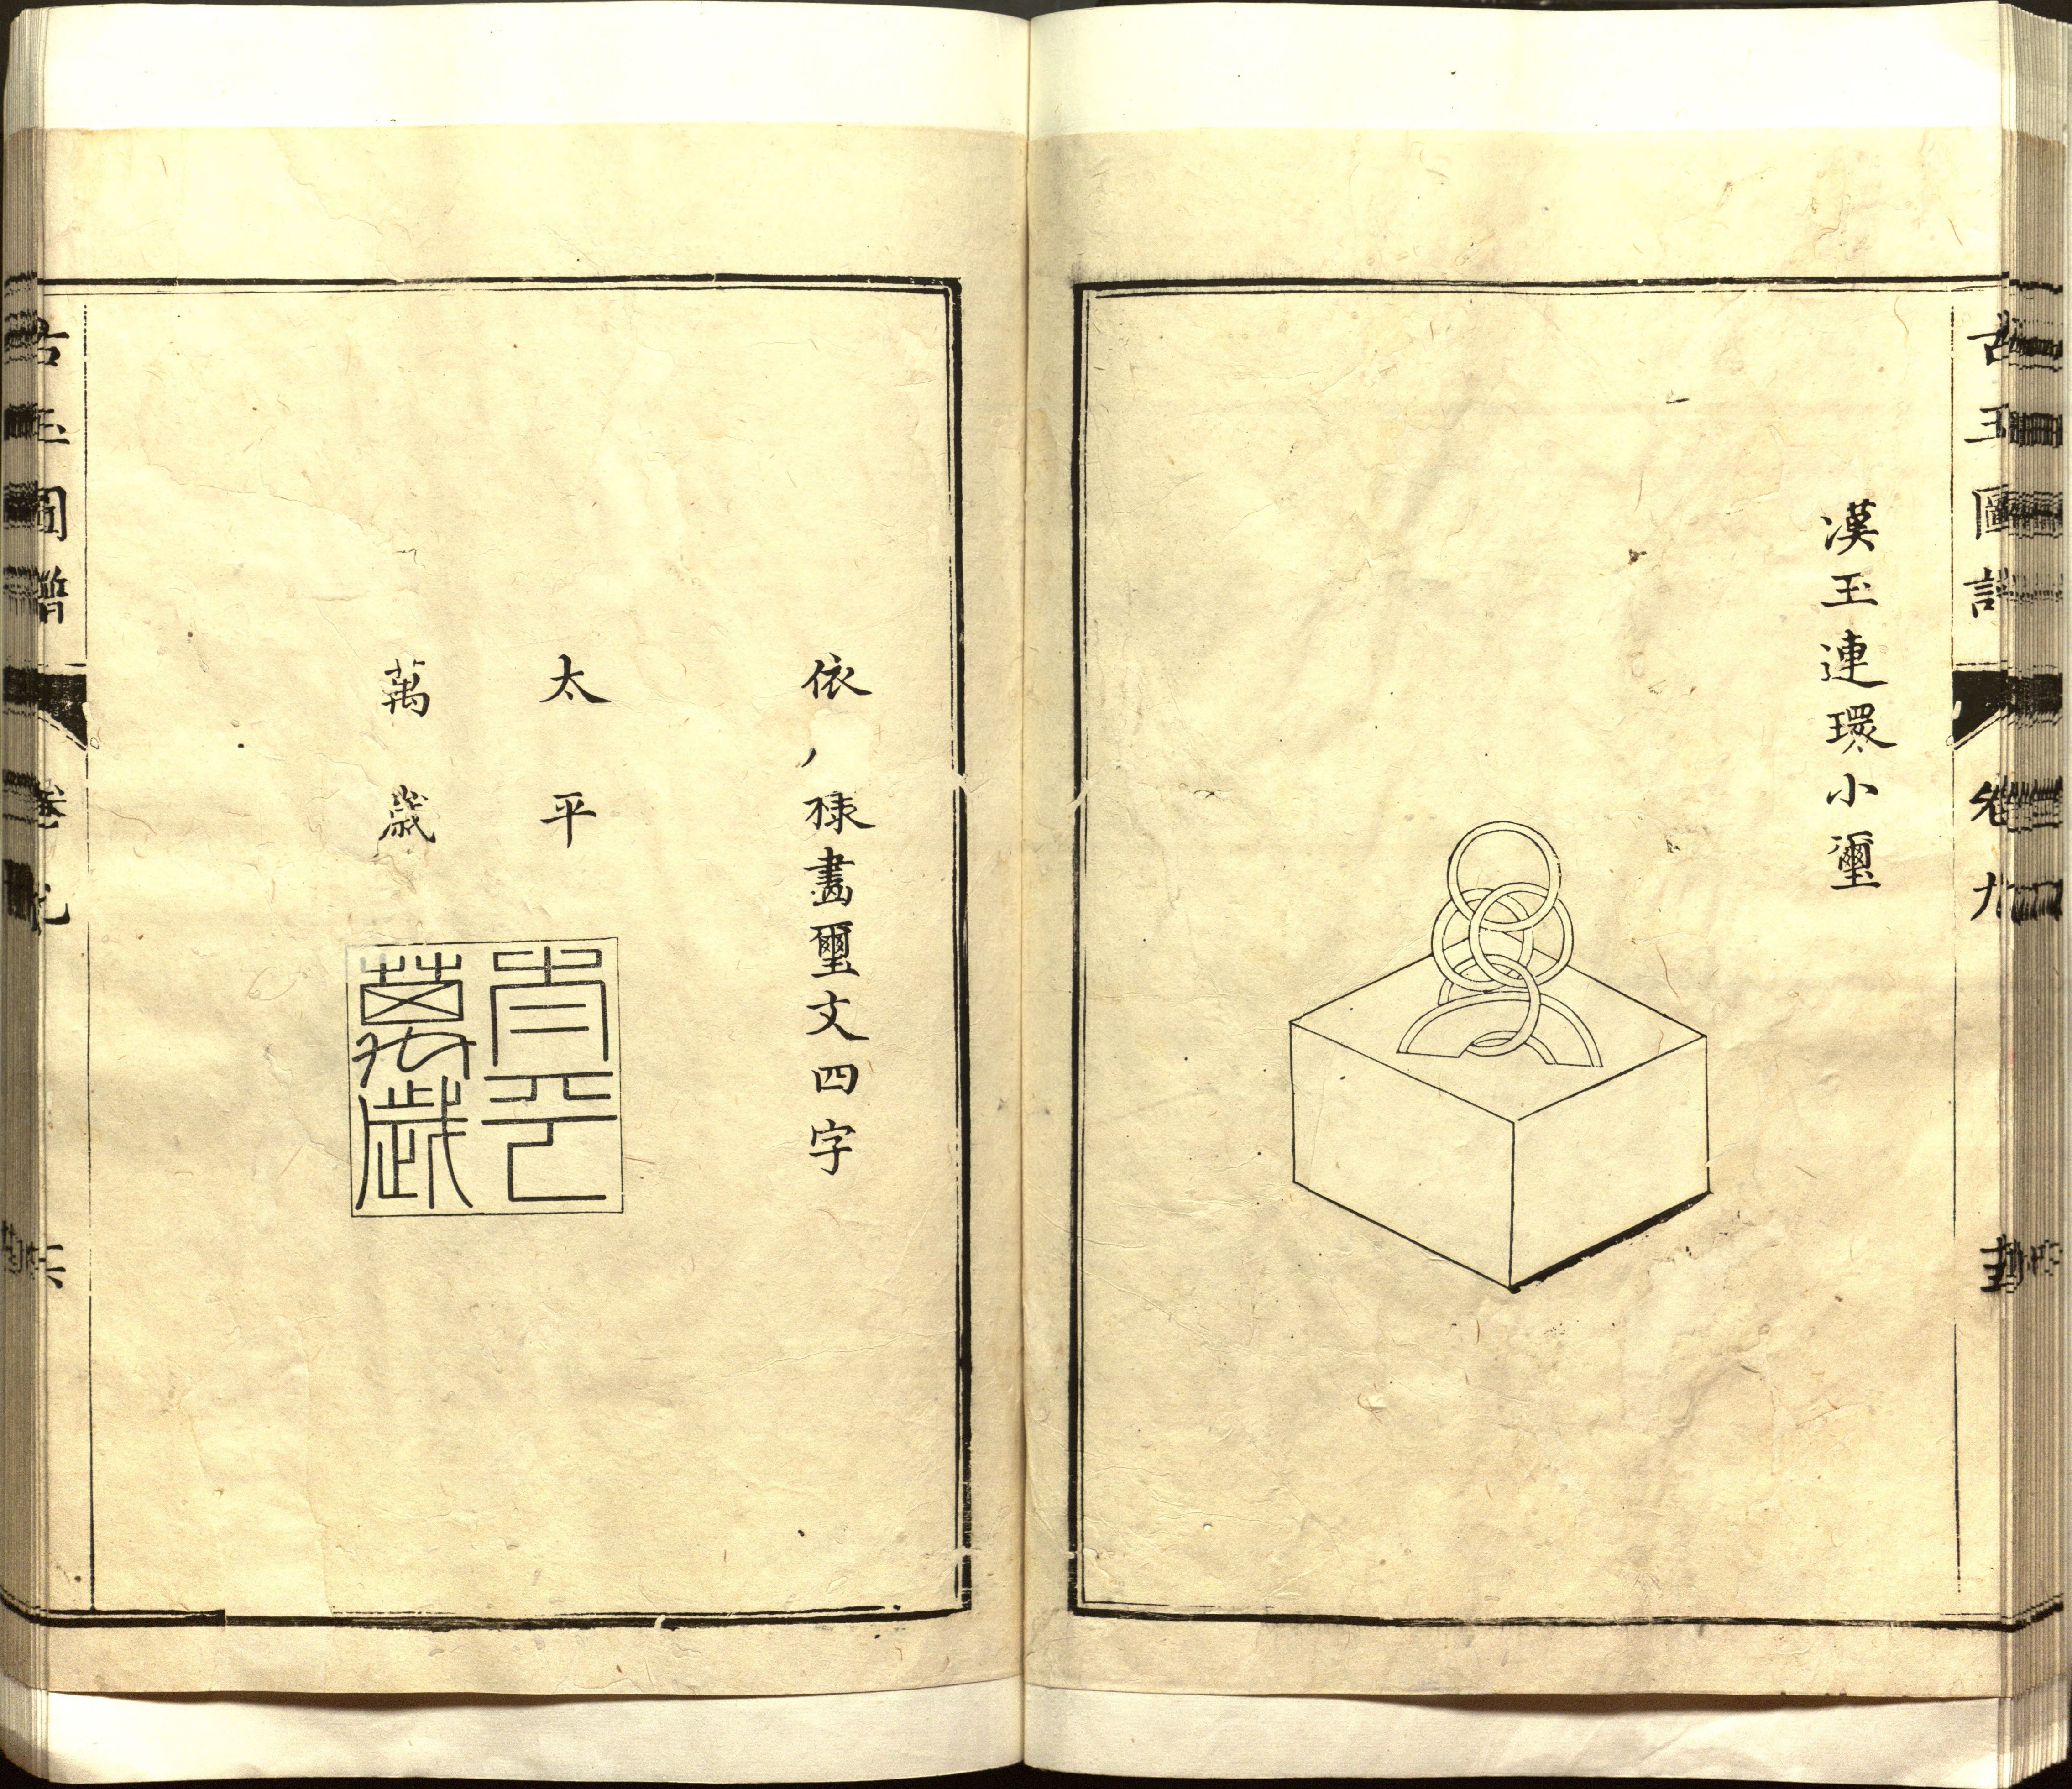 漢玉連環小璽
古玉圖譜 卷九
依樣畫璽文四字
太平
萬歲
太平萬歲
古玉圖譜 卷九